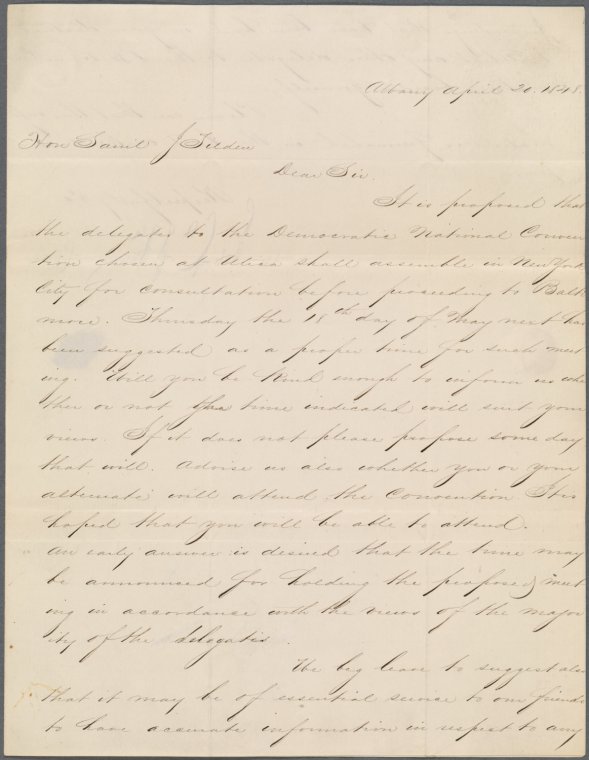 Albany April 20. 1848.
Hon Saml J Tilden
Dear Sir.
It is proposed that
the delegates to the Democratic National Conven
tion chosen at Utica shall assemble in New York
City for consultation before proceeding to Balti
more. Thursday the 18th day of May next has
been suggested as a proper time for such meet
ing. Will you be kind enough to inform us whe
ther or not the time indicated will suit your
views. If it does not please propose some day
that will. Advise us also whether you or your
alternate will attend the Convention It is
hoped that you will be able to attend.
An early answer is desired that the time may
be announced for holding the proposed meet
ing in accordance with the views of the major
ity of the delegates.
We beg leave to suggest also
that it may be of essential service to our friends
to have accurate information in respect to any